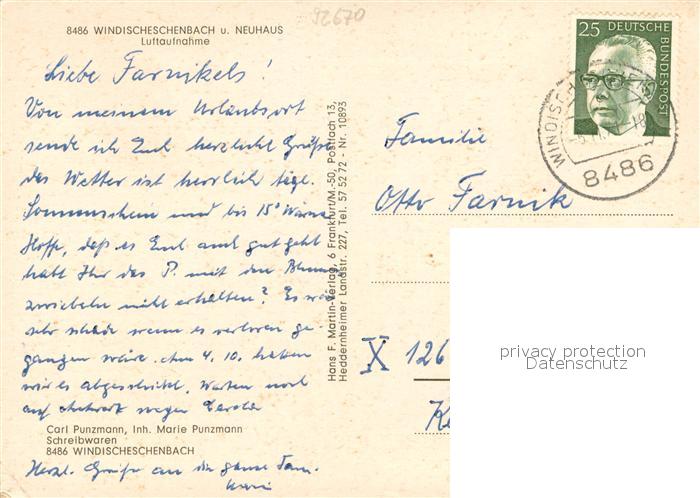 92670
8486 WINDISCHESCHENBACH u. NEUHAUS
Luftaufnahme
Liebe Farnikels!
Von meinem Urlaubsort
sende ich Euch herzlichst Grüße
das Wetter ist herrlich tägl.
Sonnenschein und bis 15° Wärme
Hoffe, daß es Euch auch gut geht
habt Ihr das P. mit den Blumen
zwiebeln nicht erhalten? Es wäre
sehr schade wenn es verloren ge-
gangen wäre. Am 4. 10. haben
wir es abgeschickt. Warten noch
auf Antwort wegen
Carl Punzmann, Inh. Marie Punzmann
Schreibwaren
8486 WINDISCHESCHENBACH
Herzl. Grüße an die ganze Fam.
Hans F. Martin-Verlag, 6 Frankfurt/M.-50, Postfach 13,
Heddernheimer Landstr. 227, Tel. 57 52 72 - Nr. 10893
25 DEUTSCHE
BUNDESPOST
8486
Familie
Otto Farnik
X 126
privacy protection
Datenschutz